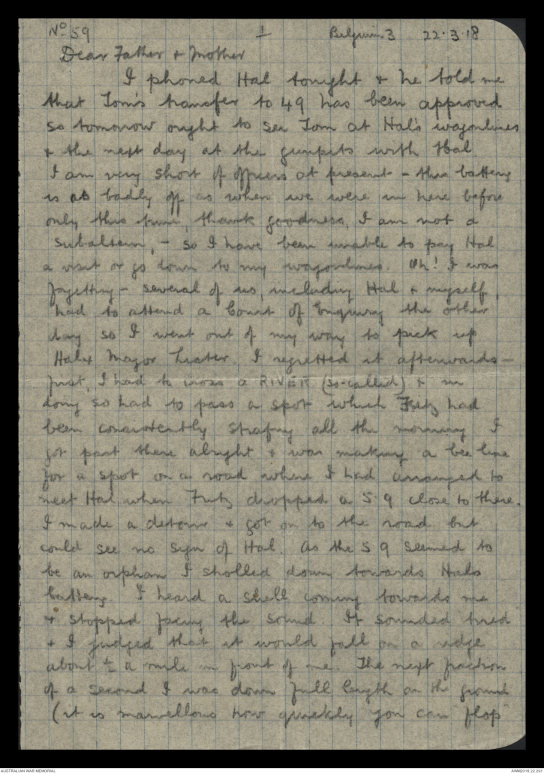 No 59 1 Belgium 3 22.3.18
Dear Father & Mother
I phoned Hal tonight & he told me
that Tom's transfer to 49 has been approved
so tomorrow ought to see Tom at Hal's wagonlines
& the next day at the gunpits with Hal
I am very short of officers at present - this battery
is as badly off as when we were in here before
only this time, thank goodness, I am not a
subaltern, - so I have been unable to pay Hal
a visit or go down to my wagonlines. Oh! I was
forgetting - several of us, including Hal & myself,
had to attend a Court of Enquiry the other
day so I went out of my way to pick up
Hal & Major Lister. I regretted it afterwards -
first, I had to cross a RIVER (so-called) & in
doing so had to pass a spot which Fritz had
been consistently strafing all the morning I
got past there alright & was making a bee line
for a spot on a road where I had arranged to
meet Hal when Fritz dropped a 5.9 close to there.
I made a detour & got on to the road but
could see no sign of Hal. As the 5.9 seemed to
be an orphan I strolled down towards Hals
battery. I heard a shell coming towards me
& stopped facing the sound. It sounded tired
& I judged that it would fall on a ridge
about ½ a mile in front of me. The next fraction
of a second I was down full length on the ground
(it is marvellous how quickly you can flop
AUSTRALIAN WAR MEMORIAL